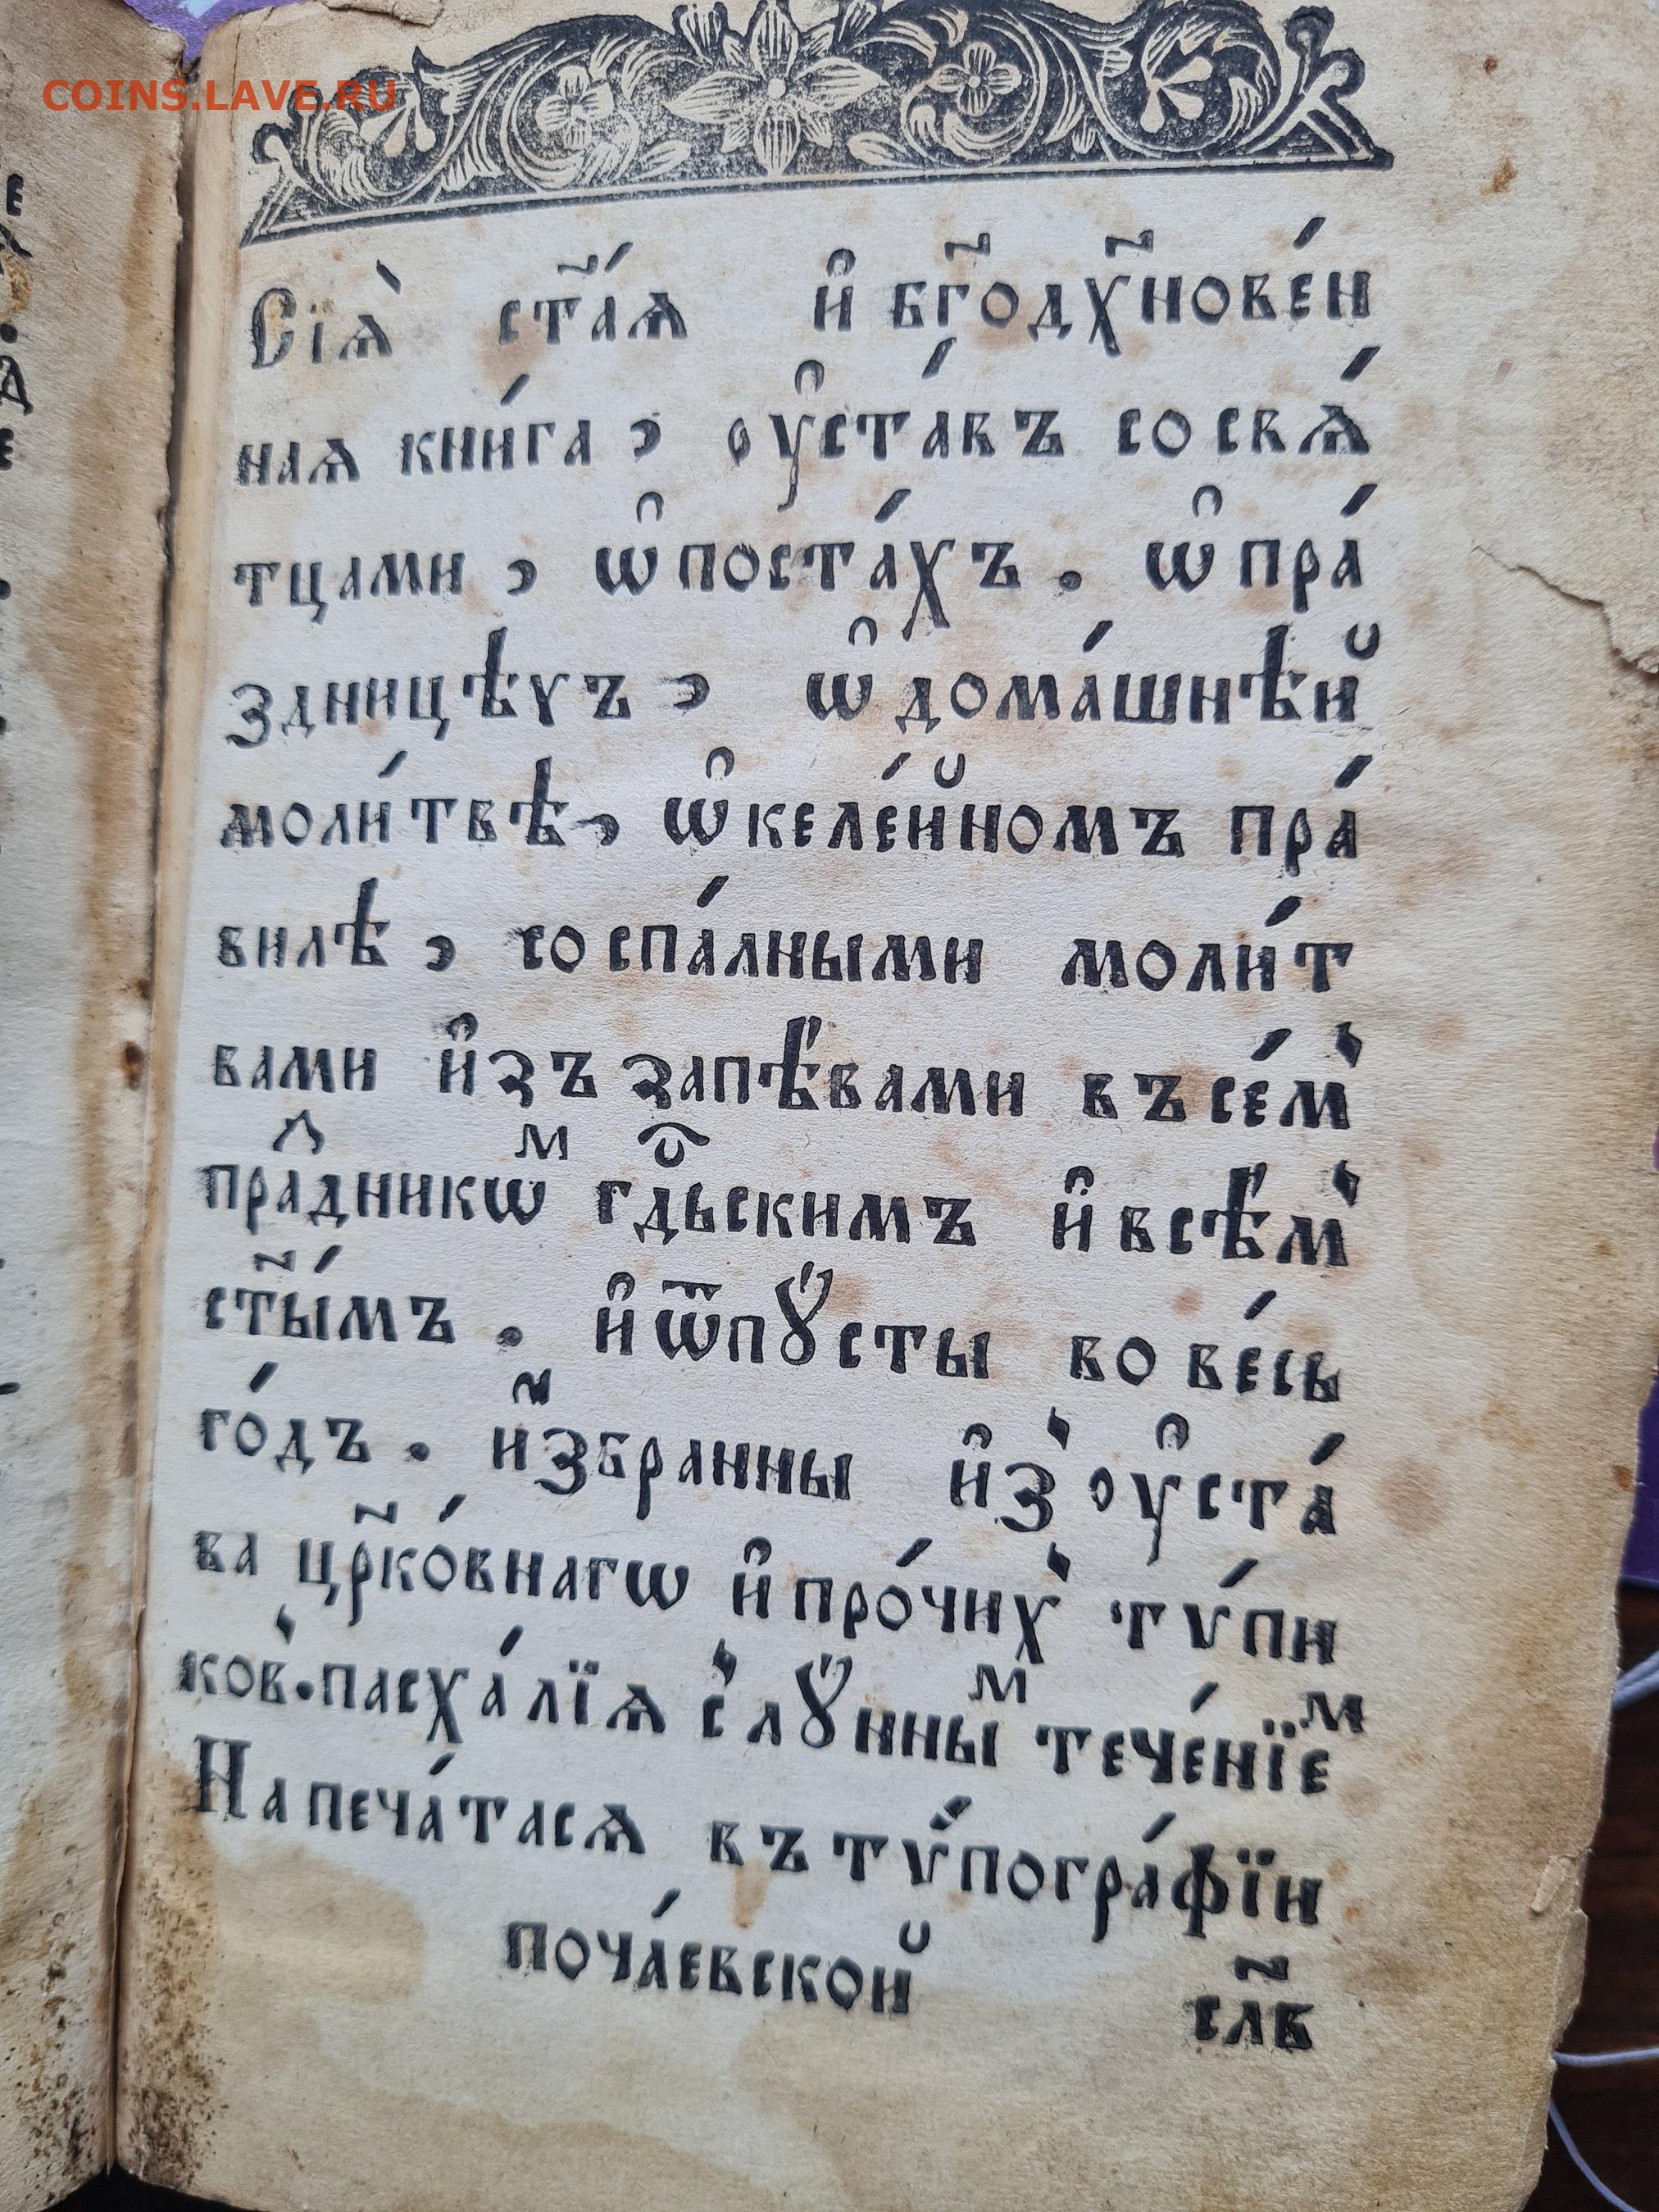 COINS.LAVE.RU
Сїѧ̀ ст҃а́ѧ и҆ бг҃одх҃нове́н
наѧ кни́га, оу҆ста́въ со свѧ́
тцами, ѡ҆ поста́хъ. ѡ҆ пра́
здницѣхъ, ѡ҆ дома́шнѣй
моли́твѣ, ѡ҆ келе́йномъ пра́
вилѣ, со спа́лными моли́т
вами и҆ зъ запѣ́вами въ се́м̾
пра́ⷥдникѡⷨ гдⷭ҇ьскимъ и҆ всѣ́м̾
ст҃ы́мъ. и҆ ѿпꙋ́сты во ве́сь
го́дъ. и҆збранны и҆з̾ оу҆ста́
ва цр҃ко́внагѡ и҆ про́чих̾ тѵ́пи
ков̾. пасха́лїѧ с̾ лꙋ́нныⷨ тече́нїеⷨ
Напеча́тасѧ въ тѵ́погра́фїи
поча́евской
сл҃в